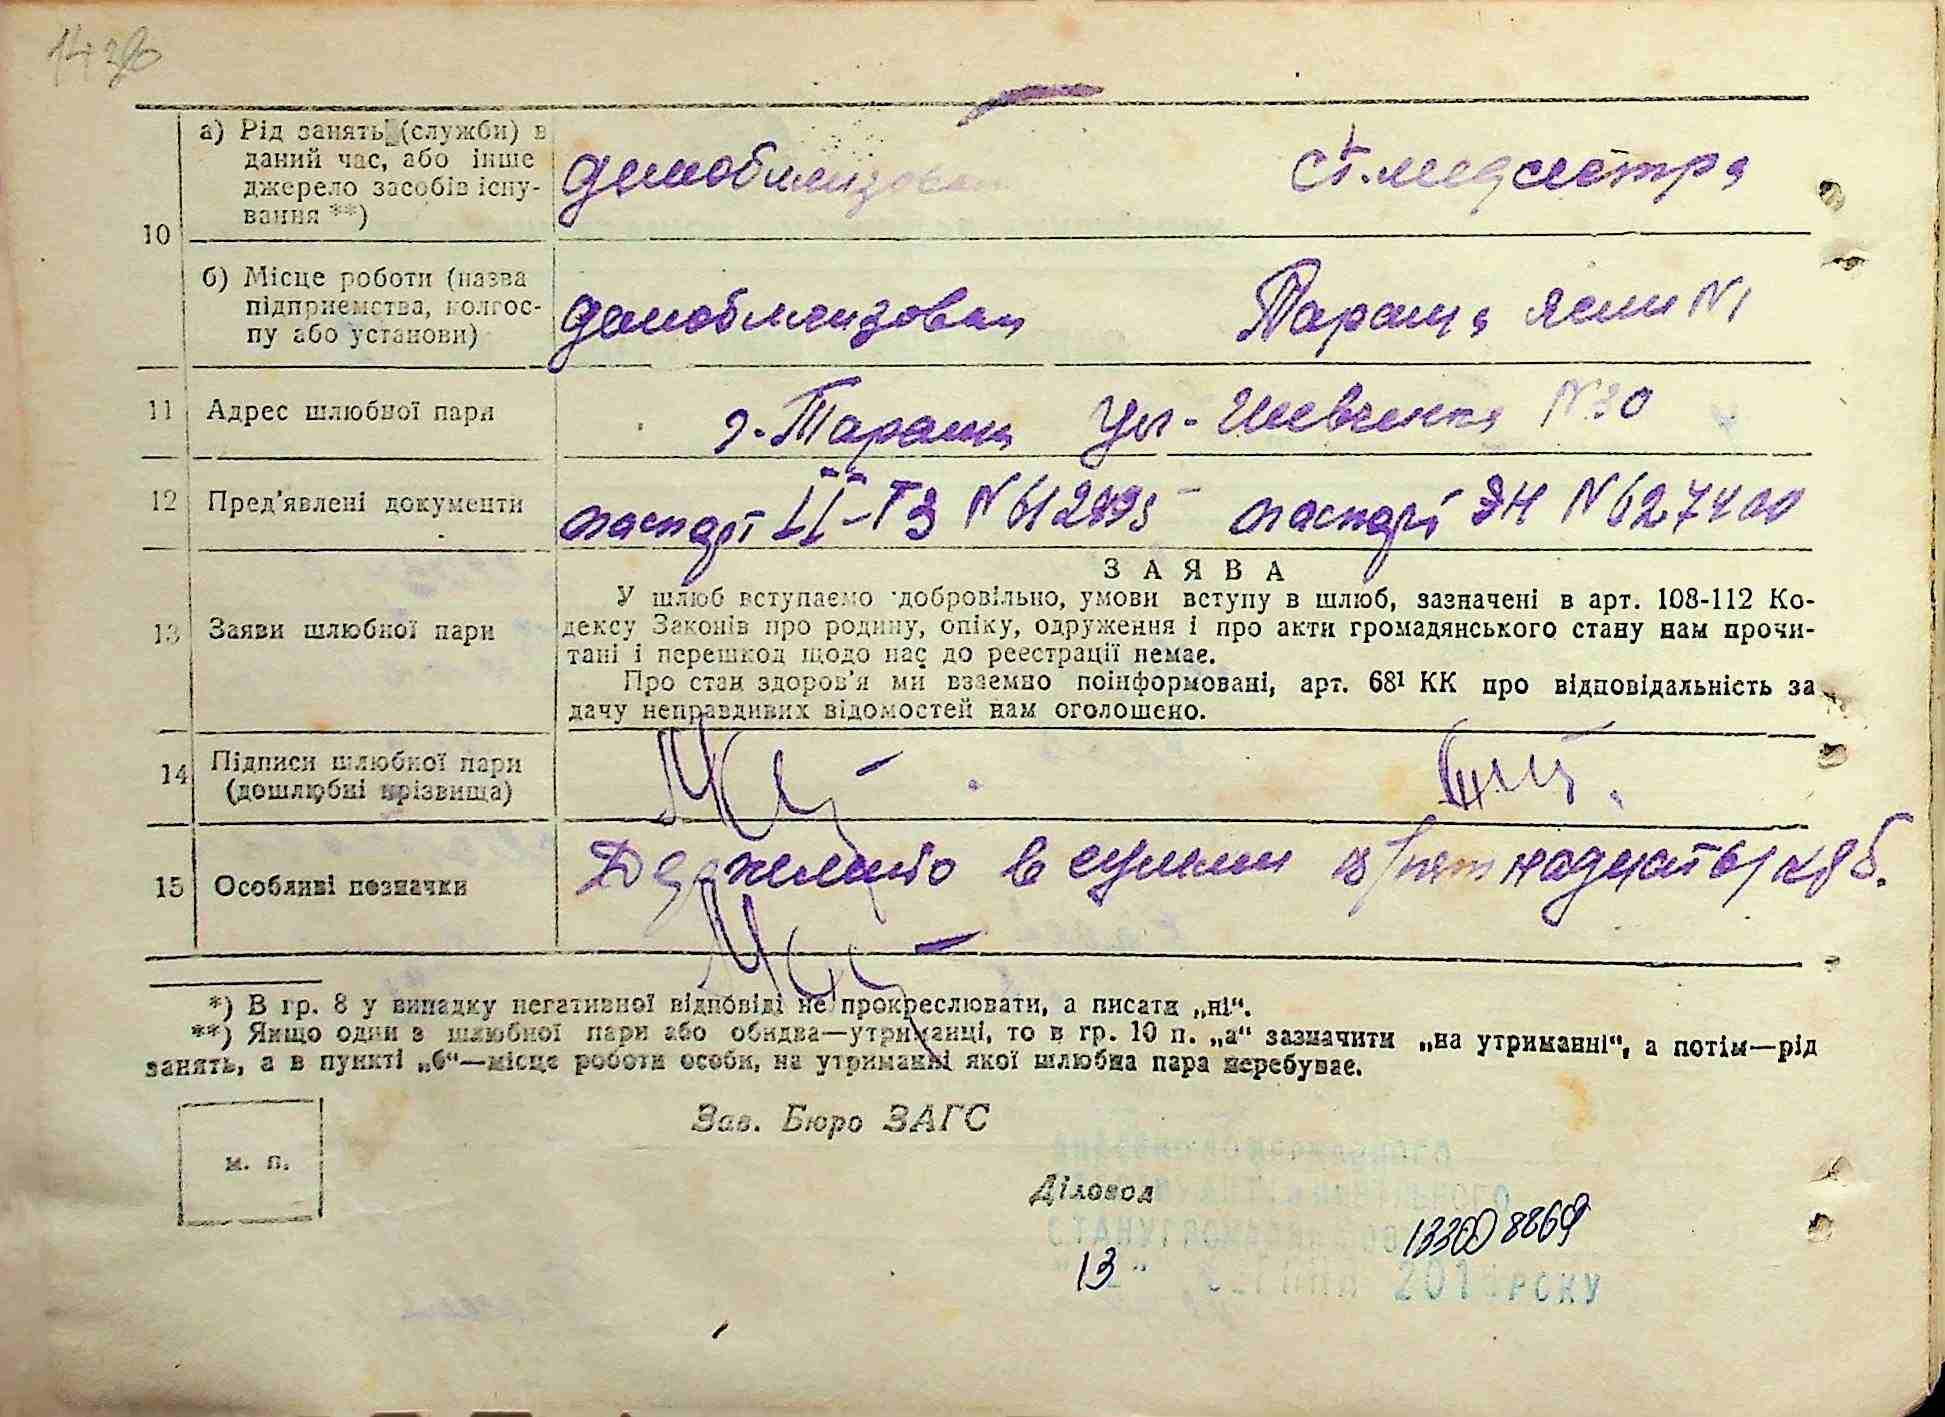 10
а) Рід занять (служби) в
даний час, або інше
джерело засобів існу-
вання **)
демобилизован
ст. медсестра
б) Місце роботи (назва
підприємства, колгос-
пу або установи)
демобилизован
Тараща ясли №1
11 Адрес шлюбної пари
г. Тараща ул. Шевченка №30
12 Пред'явлені документи
паспорт II-ТЗ № паспорт ЭН №627400
13 Заяви шлюбної пари
ЗАЯВА
У шлюб вступаємо добровільно, умови вступу в шлюб, зазначені в арт. 108-112 Ко-
дексу Законів про родину, опіку, одруження і про акти громадянського стану нам прочи-
тані і перешкод щодо нас до реестрації немає.
Про стан здоров'я ми взаємно поінформовані, арт. 68¹ КК про відповідальність за
дачу неправдивих відомостей нам оголошено.
14 Підписи шлюбної пари
(дошлюбні прізвища)
15 Особливі позначки
в сумме 15/пятнадцать/ руб.
*) В гр. 8 у випадку негативної відповіді не прокреслювати, а писати „ні“.
**) Якщо один з шлюбної пари або обидва—утриманці, то в гр. 10 п. „а“ зазначити „на утриманні“, а потім—рід
занять, а в пункті „б“—місце роботи особи, на утриманні якої шлюбна пара перебуває.
Зав. Бюро ЗАГС
м. п.
Діловод
СТАНУ
13
РОКУ